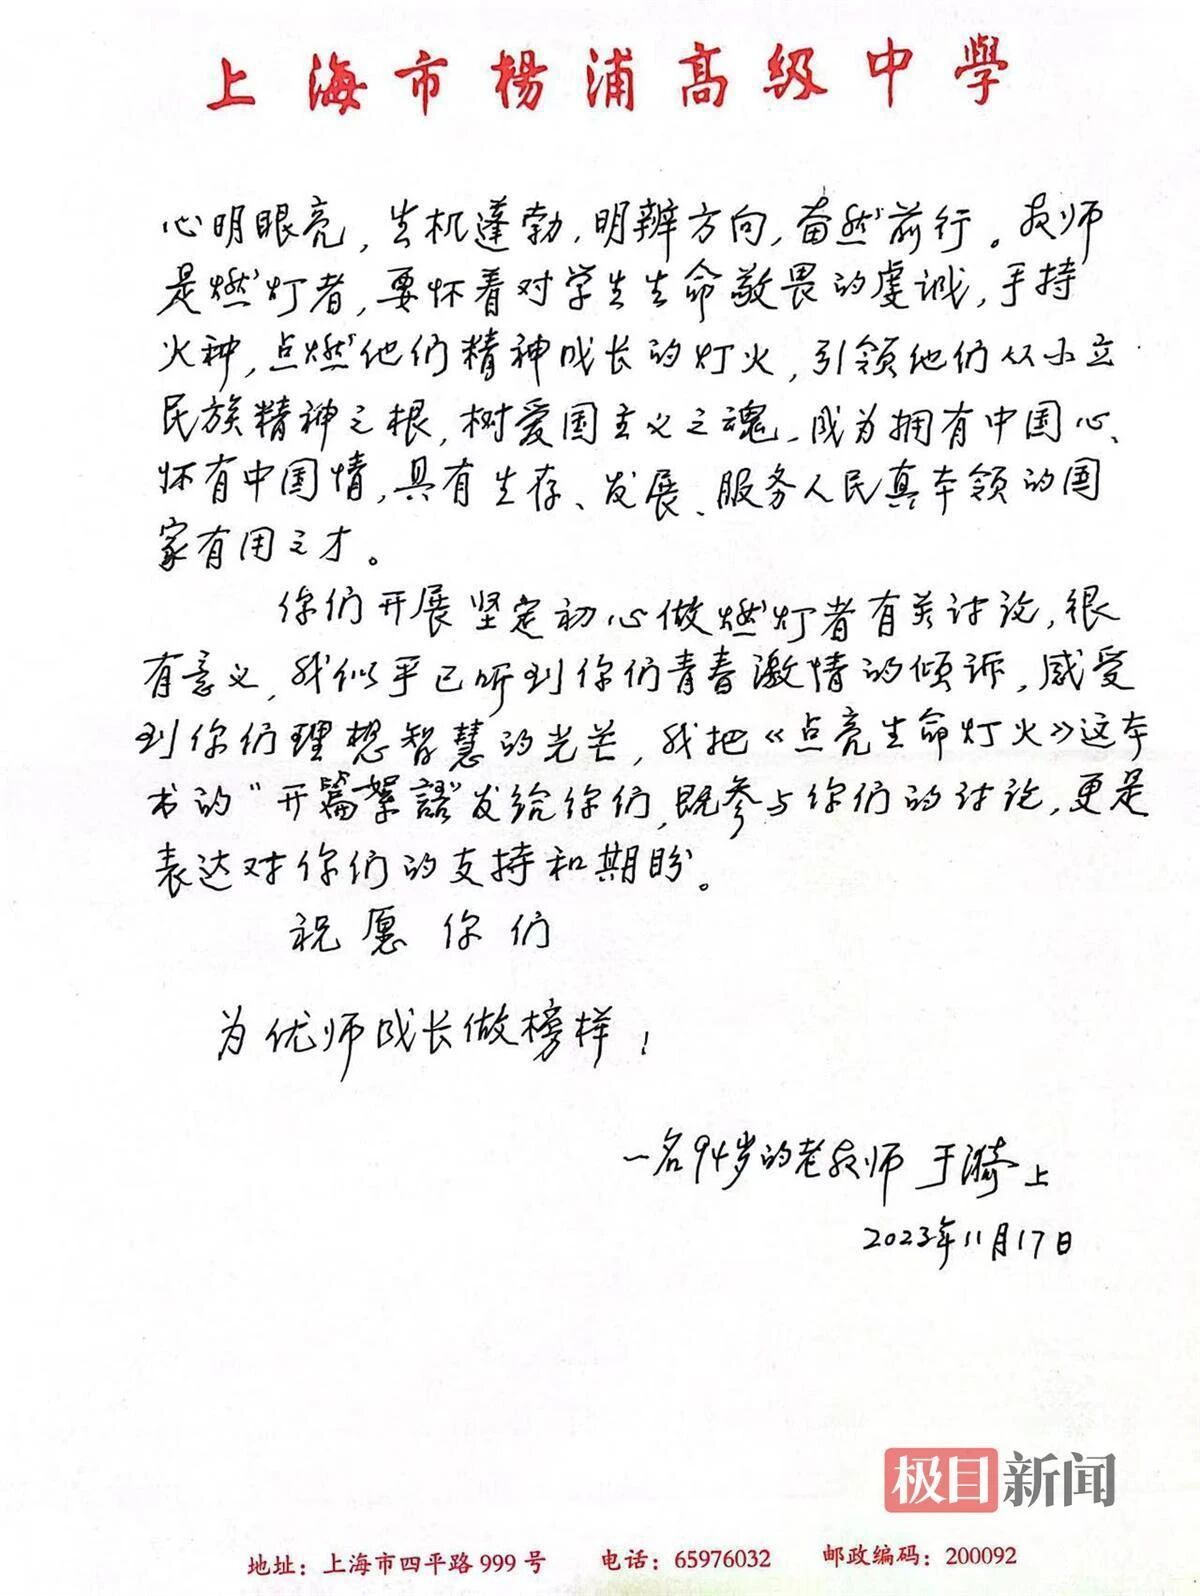 上海市杨浦高级中學
心明眼亮，生机蓬勃，明辨方向，奋然前行。教师
是燃灯者，要怀着对学生生命敬畏的虔诚，手持
火种，点燃他们精神成长的灯火，引领他们从小立
民族精神之根，树爱国主义之魂，成为拥有中国心、
怀有中国情，具有生存、发展、服务人民真本领的国
家有用之才。
你们开展坚定初心做燃灯者有关讨论，很
有意义，我似乎已听到你们青春激情的倾诉，感受
到你们理想智慧的光芒，我把《点亮生命灯火》这本
书的“开篇絮語”发给你们，既参与你们的讨论，更是
表达对你们的支持和期盼。
祝愿你们
为优师成长做榜样！
一名94岁的老教师 于漪上
2023年11月17日
极目新闻
地址：上海市四平路999号 电话：65976032 邮政编码：200092